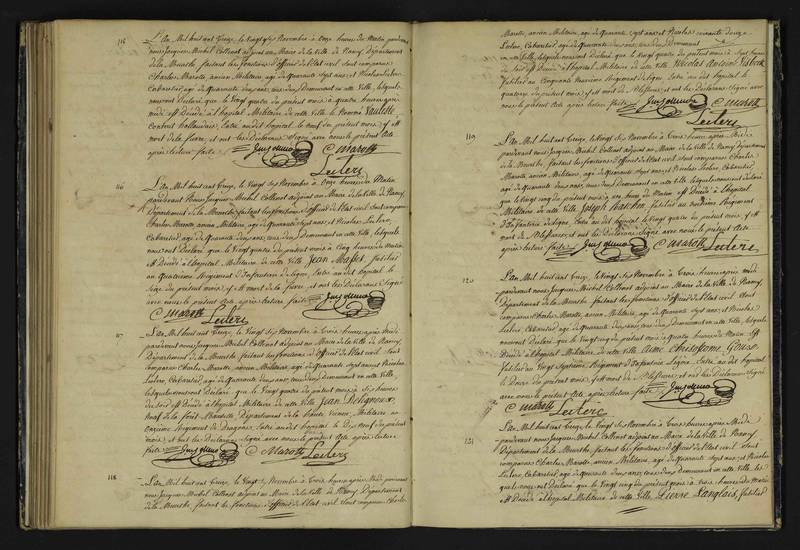 115
L'An Mil huit cent Treize, le Vingt six Novembre à Onze heures du Matin pardevant
nous Jacques Michel Collenot adjoint au Maire de la Ville de Nancy, Département
de la Meurthe, faisant les fonctions d'officier de l'Etat civil, sont comparus
Charles Marotte, ancien Militaire, agé de quarante sept ans, et Nicolas Leclerc,
Cabaretier, agé de quarante deux ans, tous deux demeurant en cette Ville, lesquels
nous ont Déclaré que le Vingt quatre du présent mois à quatre heures
est Décédé à l'hôpital Militaire de cette Ville le nommé
hollandais, Entré audit hôpital le neuf du présent mois, y est
mort de la fievre, et ont les Déclarans Signé avec nous le présent Acte
après lecture faite.
C marotte
Leclerc
116
L'an Mil huit cent Treize, le Vingt six Novembre à Onze heures du Matin
pardevant Nous Jacques Michel Collenot adjoint au Maire de la Ville de Nancy,
Département de la Meurthe faisant les fonctions d'officier de l'Etat civil sont comparus
Charles Marotte, ancien Militaire, agé de quarante sept ans, et Nicolas Leclerc,
Cabaretier, agé de quarante deux ans, tous deux demeurant en cette Ville, lesquels
nous ont Déclaré que le Vingt quatre du présent mois à Cinq heures du Matin
est Décédé à l'hôpital Militaire de cette Ville Jean Fusilier
au quatrième Régiment d'Infanterie de ligne, Entré audit hôpital le
Seize du présent mois, y est mort de la fievre, et ont les Déclarans Signé
avec nous le présent Acte après lecture faite
C marotte Leclerc
117
L'an Mil huit cent Treize, le Vingt Six Novembre à Trois heures après Midi
pardevant nous Jacques Michel Collenot adjoint au Maire de la Ville de Nancy,
Département de la Meurthe faisant les fonctions d'officier de l'Etat civil Sont
comparus Charles Marotte, ancien Militaire, agé de quarante Sept ans, et Nicolas
Leclerc, Cabaretier, agé de quarante deux ans, tous deux Demeurant en cette Ville
lesquels nous ont Déclaré que le Vingt quatre du présent mois à Six heures
du Soir est Décédé à l'hôpital Militaire de cette Ville Jean
Département de la haute Vienne, Militaire au
Onzième Régiment de Dragons, Entré audit hôpital le Dix neuf du présent
mois, et ont les Déclarans Signé avec nous le présent Acte après lecture
faite
C Marotte Leclerc
118
L'An Mil huit cent Treize, le Vingt Six Novembre à Trois heures après Midi pardevant
nous Jacques Michel Collenot adjoint au Maire de la Ville de Nancy, Département
de la Meurthe, faisant les fonctions d'officier de l'Etat civil, Sont comparus Charles
Marotte, ancien Militaire, agé de quarante Sept ans, et Nicolas
Leclerc, Cabaretier, agé de quarante deux ans, tous deux Demeurant
en cette Ville, lesquels nous ont Déclaré que le Vingt quatre du présent mois à Sept heures
du Soir est Décédé à l'hôpital Militaire de cette Ville Nicolas Antoine
Fusilier au Cinquante Régiment de ligne, Entré audit hôpital le
quatorze du présent mois, y est mort et ont les Déclarans Signé avec
nous le présent Acte après lecture faite
C marotte
Leclerc
119
L'An Mil huit cent Treize, le Vingt Six Novembre à Trois heures après Midi
pardevant nous Jacques Michel Collenot adjoint au Maire de la Ville de Nancy, Département
de la Meurthe, faisant les fonctions d'officier de l'Etat civil, Sont comparus Charles
Marotte, ancien Militaire, agé de quarante Sept ans, et Nicolas Leclerc, Cabaretier,
agé de quarante deux ans, tous deux demeurant en cette Ville, lesquels nous ont Déclaré
que le Vingt cinq du présent mois, à une heure du Matin est Décédé à l'hôpital
Militaire de cette Ville, Joseph fusilier au Régiment
d'Infanterie de ligne, Entré audit hôpital le Vingt quatre du présent mois, y est
mort de et ont les Déclarans Signé avec nous le présent Acte
après lecture faite
C marotte Leclerc
120
L'An Mil huit cent Treize, le Vingt Six Novembre à Trois heures après midi
pardevant nous Jacques Michel Collenot adjoint au Maire de la Ville de Nancy,
Département de la Meurthe faisant les fonctions d'officier de l'Etat civil Sont
comparus Charles Marotte, ancien Militaire, agé de quarante Sept ans, et Nicolas
Leclerc, Cabaretier, agé de quarante deux ans, tous deux demeurant en cette Ville, lesquels
nous ont Déclaré que le Vingt cinq du présent mois à quatre heures du Matin, Est
Décédé à l'hôpital Militaire de cette Ville Christophe
Fusilier au Vingt Septième Régiment d'Infanterie Légère, Entré audit hôpital
le Douze du présent mois, y est mort de et ont les Déclarans Signé
avec nous le présent Acte après lecture faite
C marotte Leclerc
121
L'An Mil huit cent Treize, le Vingt Six Novembre à Trois heures après Midi
pardevant nous Jacques Michel Collenot adjoint au Maire de la Ville de Nancy
Département de la Meurthe faisant les fonctions d'officier de l'Etat civil Sont
comparus Charles Marotte, ancien Militaire, agé de quarante Sept ans, et Nicolas
Leclerc, Cabaretier, agé de quarante deux ans, tous deux Demeurant en cette Ville, les
quels nous ont Déclaré que le Vingt cinq du présent mois à Trois heures du Matin
est Décédé à l'hôpital Militaire de cette Ville, Pierre Langlais, fusilier